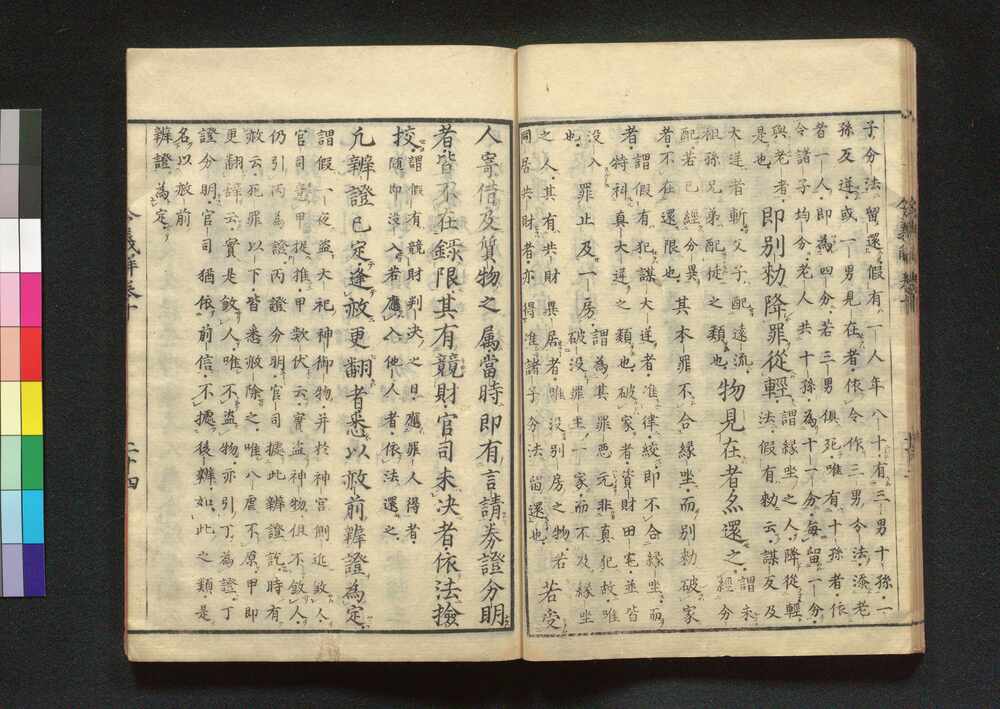 子分法留還假有一人年八十有三男十孫一
孫反逆或一男見在者依令作三男令法添老
者一人即爲四分若三男俱死唯有十孫者依
令諸子均分老人共十孫爲十一分毎留一分
與老者是也即別勅降罪從輕謂緣坐之人降從輕法假有勅云謀反及
大逆者斬父子配遠流祖孫兄弟配徒之類也物見在者亦還之謂未經分
配若已經分異者不在還限也其本罪不合緣坐而別勅破家
者謂假有犯謀大逆者准律絞即不合緣坐而特科真大逆之類也破家者資財田宅並皆
没入也罪止及一房謂爲其罪惡元非真犯故唯破没罪主一家而不及緣坐
之人其有共財異居者唯没別房之物若同居共財者亦得准諸子分法留還也若受
人寄借及質物之属當時即有言請券證分明
者皆不在録限其有競財官司未决者依法撿
挍謂假有競財判决之日應罪人得者隨即没入若應入他人者依法還之
凢辨證已定逢赦更翻者悉以赦前辨證爲定
謂假一夜盗大祀神御物并於神宮側近煞人
官司追捉推甲欵伏云實盗神物俱不煞人
仍引丙爲證丙證分明官司據此辨證訖時有
赦云死罪以下皆悉赦除之唯八虐不原甲即
更翻辞云實是煞人唯不盗物亦引丁爲證丁
證分明官司猶依前信不據後辨如此之類是
名以赦前
辨證爲定
令義解卷十
二十四